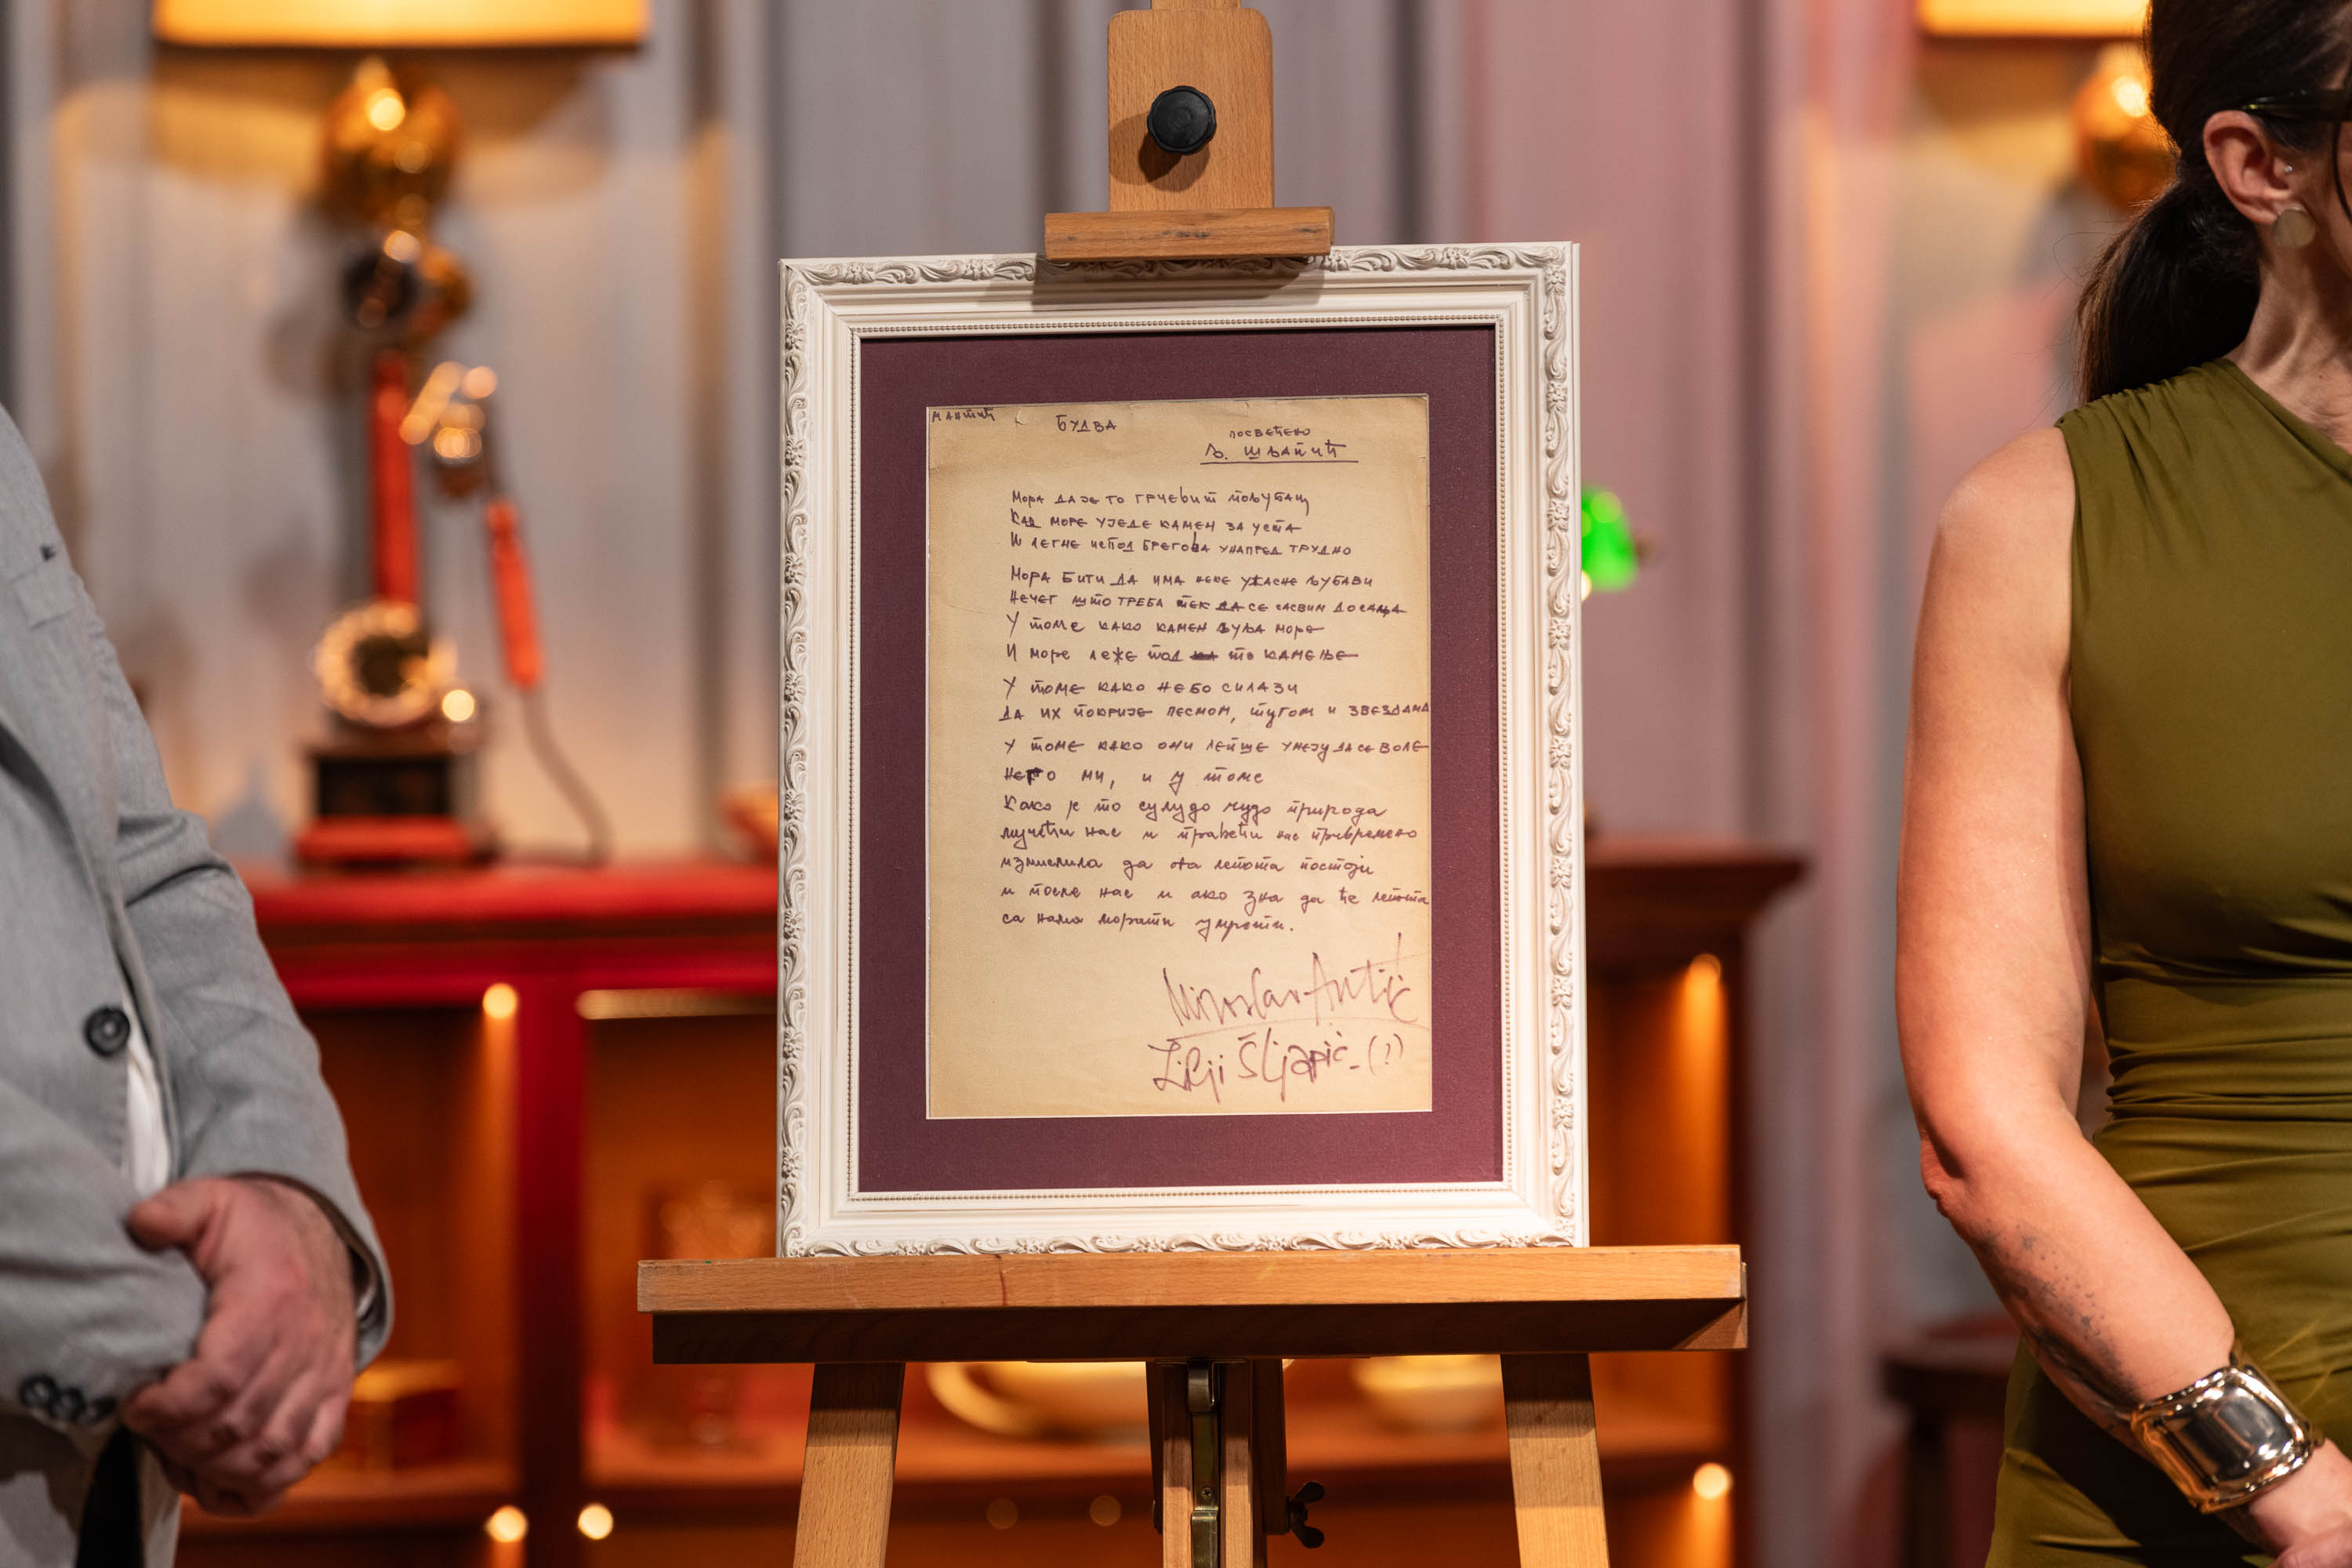 М АНТИЋ
БУДВА
ПОСВЕЋЕНО
Љ. ШЉАПИЋ
Мора да је то грчевит пољубац
Кад море уједе камен за уста
И легне испод брегова унапред трудно
Мора бити да има неке ужасне љубави
Нечег што треба тек да се сасвим досања
У томе како камен љуља море
И море леже под то камење
У томе како небо силази
Да их покрије песмом, тугом и звездама
У томе како они лепше умеју да се воле
Него ми, и у томе
Како је то сулудо чудо природа
мучећи нас и правећи нас привремено
измислила да ова лепота постоји
и после нас и ако зна да ће лепота
са нама морати умрети.
Miroslav Antić
Ljilji Šljapić-(!)